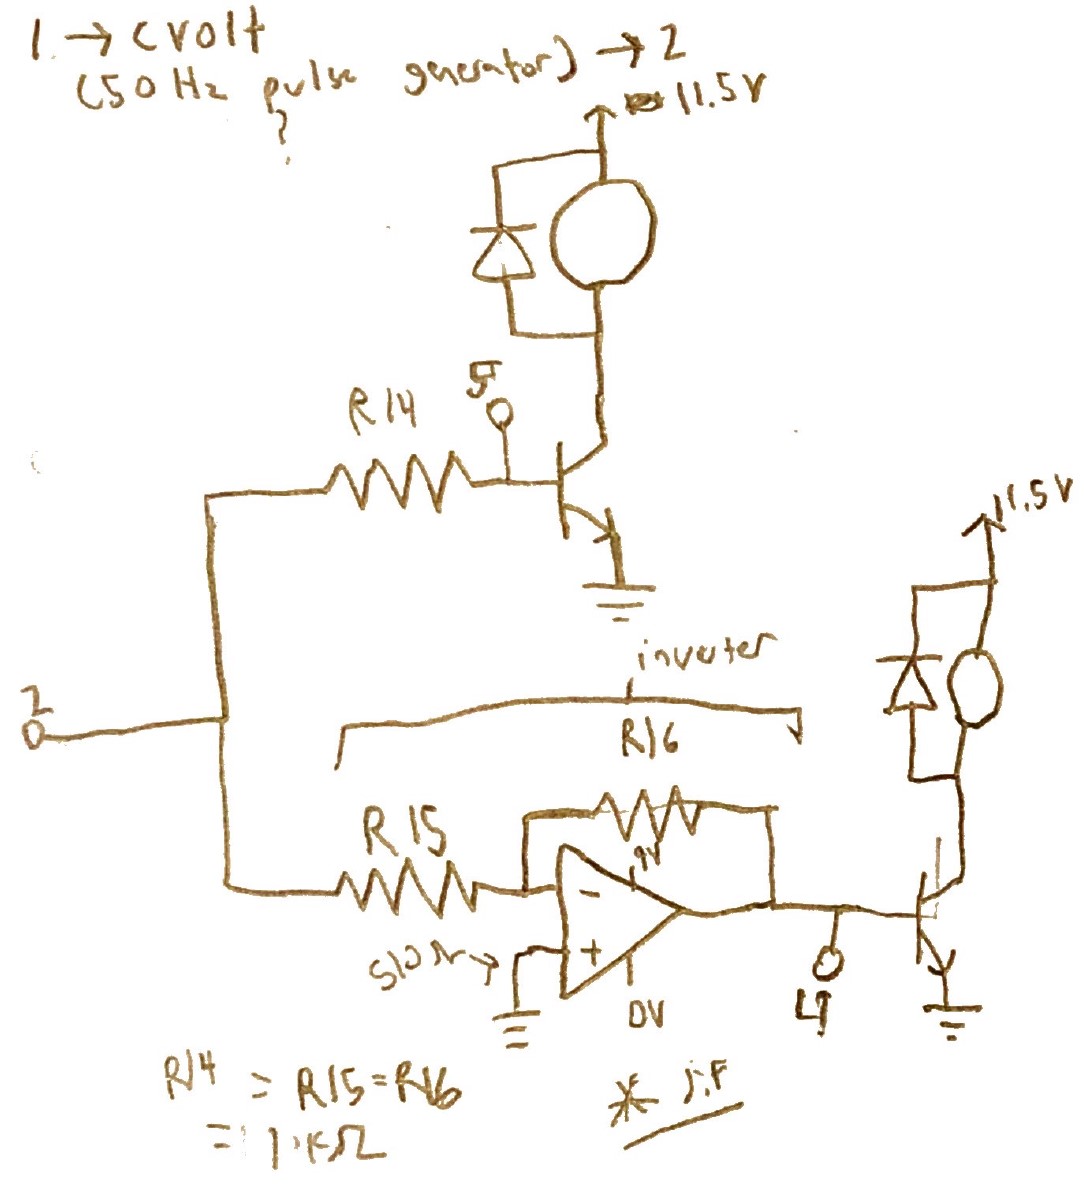 1 → cvolt
(50 Hz pulse generator) → 2
?
11.5V
R14
11.5V
inverter
2
R16
R15
9V
-
+
0V
R14 = R15 = R16
= 1.KΩ
* j.F